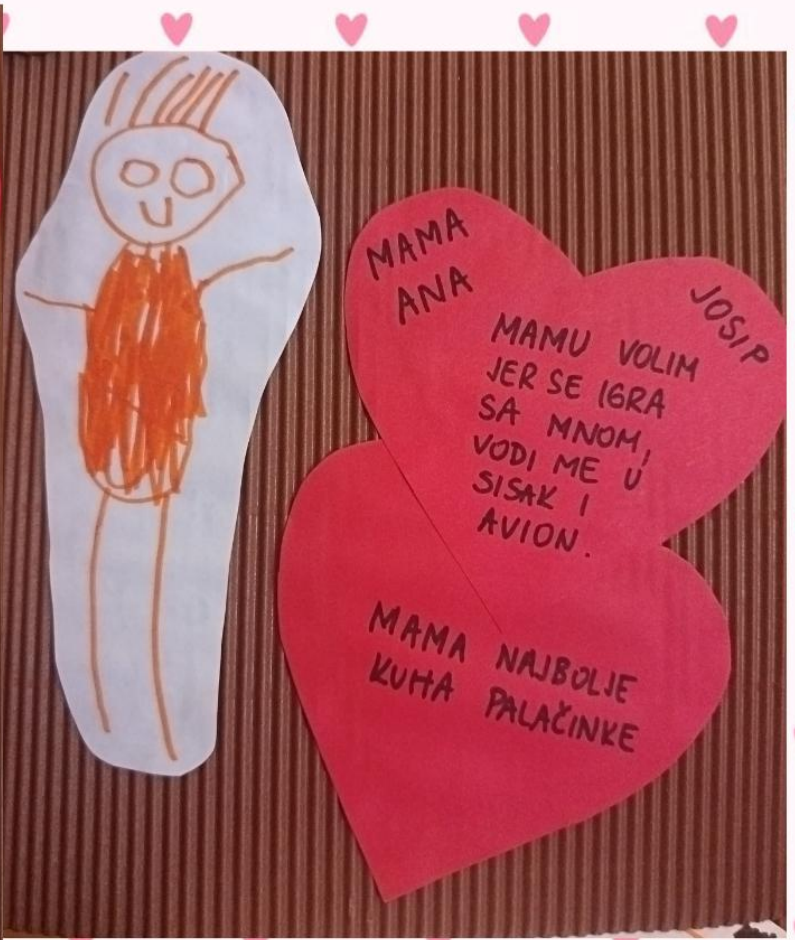 MAMA
ANA
JOSIP
MAMU VOLIM
JER SE IGRA
SA MNOM,
VODI ME U
SISAK I
AVION.
MAMA NAJBOLJE
KUHA PALAČINKE